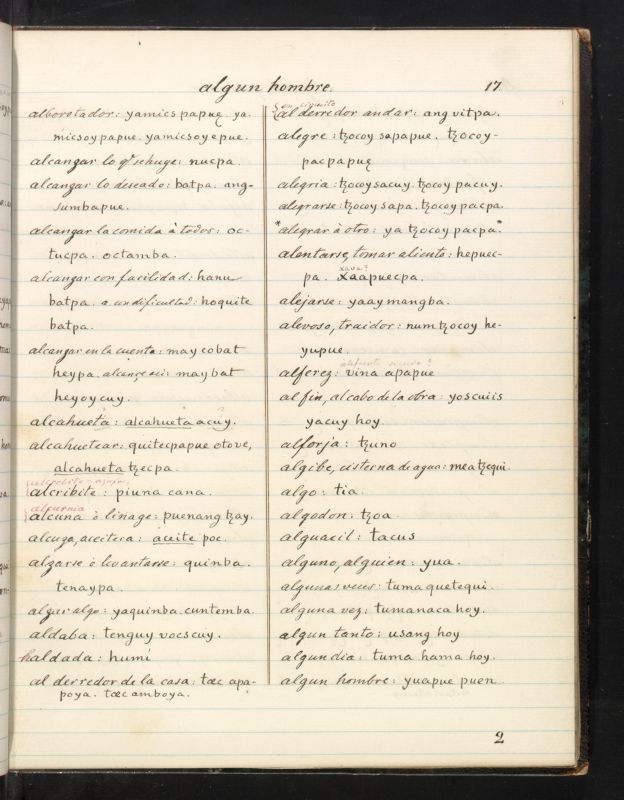 algun hombre.
17.
alborotador: yamics papuę. ya.
micsoy papue. yamicsoyepue.
alcançar lo q̃ se huye: nucpa.
alcançar lo deseado: batpa. ang-
sumbapue.
alcançar la comida à todos: oc-
tucpa. octamba.
alcançar con facilidad: hanu
batpa. a con dificultad: hoquite
batpa.
alcançar en la cuenta: may cobat
heypa. may bat
heyoycuy.
alcahueta: alcahueta acuy.
alcahuetear: quitecpapue otove,
alcahueta tzecpa.
alcribite: piuna cana.
alcurnia
alcuna ò linage: puenang tzay.
alcuza, aceitera: aceite poc.
alzarse ò levantarse: quinba.
tenaypa.
alzar algo: yaquinba. cuntemba.
aldaba: tenguy vocscuy.
haldada: humí
al derredor de la casa: tæc apa-
poya. tæc amboya.
en circuito
al derredor andar: ang vitpa.
alegre: tzocoy sapapue. tzocoy-
pacpapuę
alegria: tzocoy sacuy. tzocoy pacuy.
alegrarse: tzocoy sapa. tzocoy pacpa.
"alegrar à otro: ya tzocoy pacpa."
alentarse, tomar aliento: hepuec-
xava?
pa. xaapuecpa.
alejarse: yaay mangba.
alevoso, traidor: num tzocoy he-
yupue.
alferez: vina apapue
al fin, al cabo de la obra: yoscuiis
yacuy hoy.
alforja: tzuno
algibe, cisterna de agua: mea tzequi.
algo: tia.
algodon: tzoa.
alguacil: tacus
alguno, alguien: yua.
algunas veces: tuma quetequi.
alguna vez: tumanaca hoy.
algun tanto: usang hoy
algun dia: tuma hama hoy.
algun hombre: yuapue puen
2